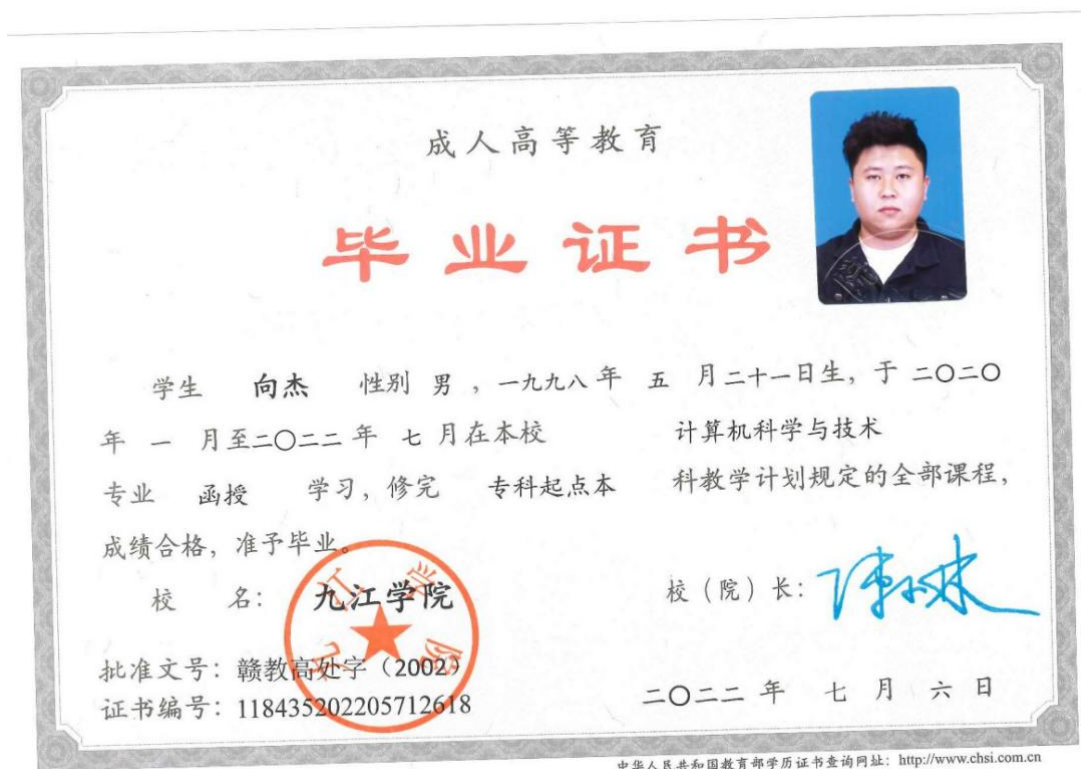 成人高等教育
毕业证书
学生 向杰 性别 男 ，一九九八 年 五 月二十一日生，于 二〇二〇
年 一 月至二〇二二 年 七 月在本校 计算机科学与技术
专业 函授 学习，修完 专科起点本 科教学计划规定的全部课程，
成绩合格，准予毕业。
校 名： 九江学院
九江学院
校（院）长：
批准文号：赣教高处字（2002）
证书编号：118435202205712618
二〇二二 年 七 月 六 日
中华人民共和国教育部学历证书查询网址：http://www.chsi.com.cn